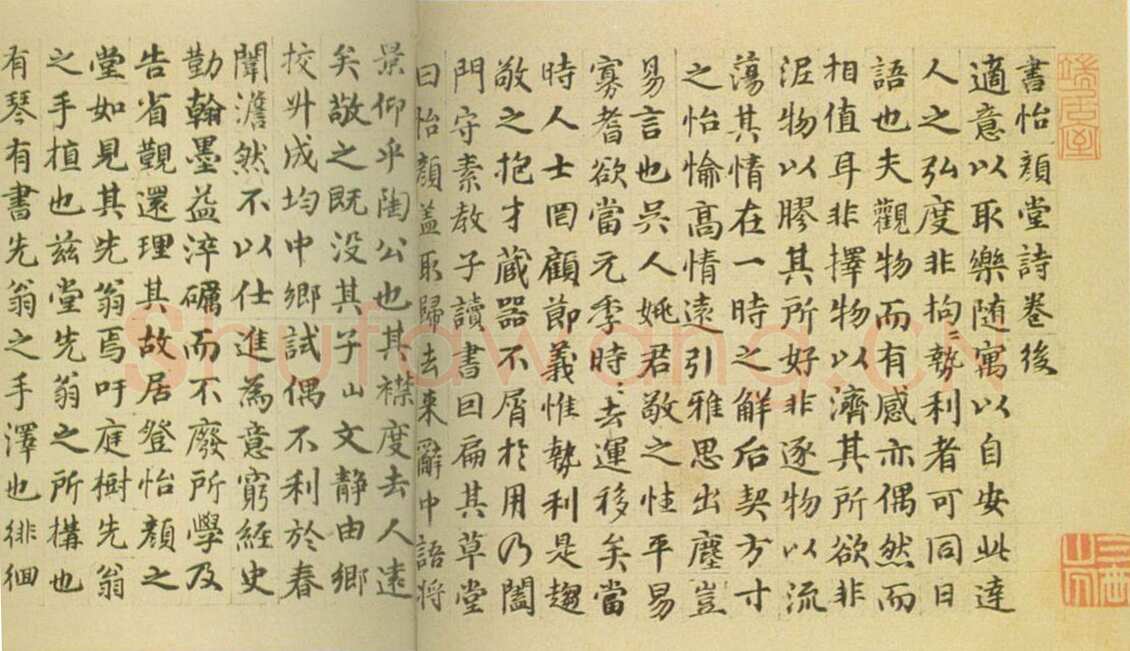 書怡顔堂詩卷後
適意以取樂随寓以自安此達
人之弘度非拘〻勢利者可同日
語也夫觀物而有感亦偶然而
相值耳非擇物以濟其所欲非
泥物以膠其所好非逐物以流
蕩其情在一時之解后契方寸
之怡愉高情遠引雅思出塵豈
易言也吳人姚君敬之性平易
寡耆欲當元季時〻去運移矣當
時人士罔顧節義惟勢利是趨
敬之抱才蔵器不屑於用乃闔
門守素教子讀書曰扁其草堂
曰怡顔盖取歸去来辭中語将
景仰乎陶公也其襟度去人遠
矣敬之既没其子山文静由鄉
挍升成均中鄉試偶不利於春
闈澹然不以仕進為意窮経史
勤翰墨益淬礪而不廢所學及
告省覲還理其故居登怡顔之
堂如見其先翁焉吁庭樹先翁
之手植也兹堂先翁之所構也
有琴有書先翁之手澤也徘徊
Shufawang.CN